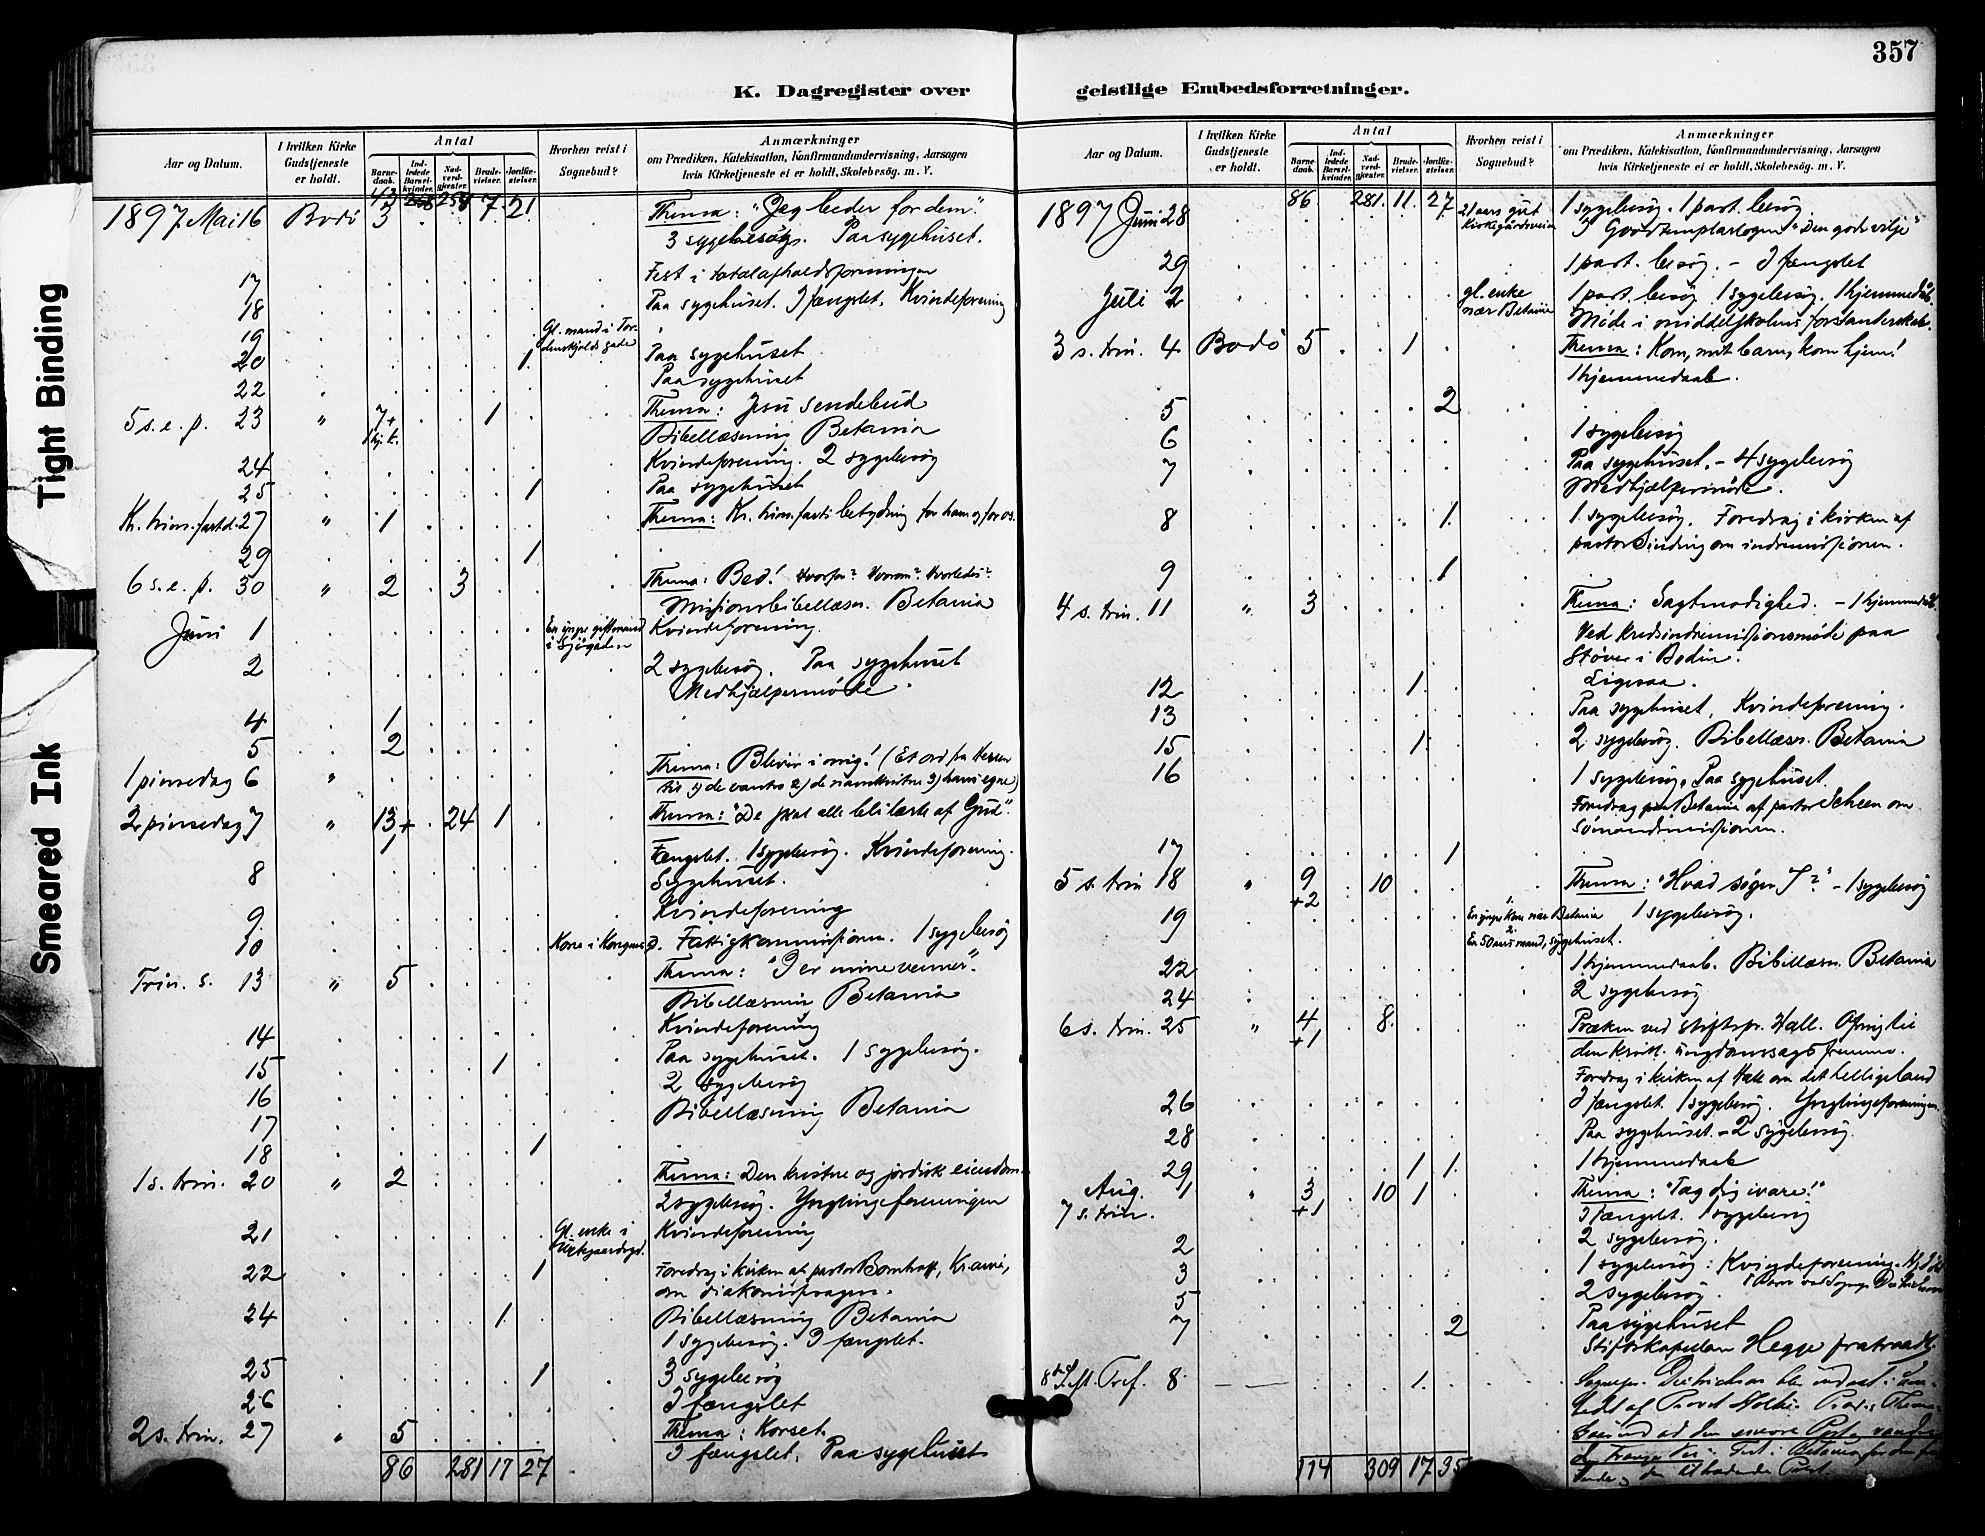 357
K. Dagregister over geistlige Embedsforretninger.
Tight Binding
Smeared Ink
Aar og Datum.
I hvilken Kirke Gudstjeneste er holdt.
Antal
Barnedaab.
Indledede Barselkvinder.
Nadverdgjester.
Brudevielser.
Jordfæstelser.
Hvorhen reist i Sognebud?
Anmærkninger
om Prædiken, Katekisation, Konfirmandundervisning, Aarsagen
hvis Kirketjeneste ei er holdt, Skolebesøg. m. V.
254 7 21
1897 Mai 16 Bodø 3 Thema: "Jeg beder for dem".
3 sygebesøg. Paa sygehuset.
17 Fest i totalafholdsforeningen
18 Paa sygehuset. I fængslet. Kvindeforening
19 Gl. mand i Tordenskjolds gade
20 1 Paa sygehuset
22 Paa sygehuset
5 s. e. p. 23 " 7+ 1 Thema: Jesu sendebud
1 hj.k. Bibellæsning Betania
24 Kvindeforening. 2 sygebesøg
25 1 Paa sygehuset
Kr. him.fartsd. 27 " 1 Thema: Kr. him.farts betydning for ham og for os.
29 1
6 s. e. p. 30 " 2 3 Thema: Bed! Hvorfor? Hvorom? Hvorledes?
Missionsbibellæsn. Betania
Juni 1 Kvindeforening.
2 2 sygebesøg. Paa sygehuset
Medhjælpermøde
4 1
5 2
1 pinsedag 6 " Thema: Bliver i mig! (Et ord fra Herren
til 1) de vantro 2) de navnkristne 3) hans egne)
2 pinsedag 7 " 13+1 24 1 Thema: "De skal alle bli lærte af Gud".
Fængslet. 1 sygebesøg. Kvindeforening.
8 Sygehuset.
9 Kvindeforening
10 Fattigkommissionen. 1 sygebesøg
Trin. s. 13 " 5 Thema: "I er mine venner".
Bibellæsning Betania
14 Kvindeforening
15 1 Paa sygehuset. 1 sygebesøg.
16 2 sygebesøg
17 Bibellæsning Betania
18 1
1 s. trin. 20 " 2 Thema: Den kristne og jordisk eiendom.
2 sygebesøg. Ynglingeforeningen
21 Gl. enke i Kirkegaardsgd. Kvindeforening
22 1 Foredrag i kirken af pastor
om diakonissesagen.
24 1 Bibellæsning Betania
1 sygebesøg. I fængslet.
25 1 3 sygebesøg
26 I fængslet
2 s. trin. 27 " 5 Thema: Korset.
I fængslet. Paa sygehuset
86 281 11 27
Aar og Datum.
I hvilken Kirke Gudstjeneste er holdt.
Antal
Barnedaab.
Indledede Barselkvinder.
Nadverdgjester.
Brudevielser.
Jordfæstelser.
Hvorhen reist i Sognebud?
Anmærkninger
om Prædiken, Katekisation, Konfirmandundervisning, Aarsagen
hvis Kirketjeneste ei er holdt, Skolebesøg. m. V.
86 281 11 27
1897 Juni 28 21 aars gut Kirkegårdsveien 1 sygebesøg. 1 part. besøg
I Goodtemplarlogen "Den gode vilje"
29 1 part. besøg. - I fængslet
Juli 2 gl. enke nær Betania 1 part. besøg 1 sygebesøg. 1 hjemmedåb.
Møde i middelskolens forstanderskab.
3 s. trin. 4 Bodø 5 1 Thema: Kom, mit barn, kom hjem!
1 hjemmedaab.
5 2
6 1 sygebesøg
7 Paa sygehuset. - 4 sygebesøg
Medhjælpermøde.
8 1 1 sygebesøg. Foredrag i kirken af
pastor Sinding om indremissionen.
9 1
4 s. trin. 11 " 3 Thema: Sagtmodighed. - 1 hjemmedåb.
Ved kredsindremissionsmøde paa
Støver i Bodin.
12 1 Ligesaa.
13 Paa sygehuset, Kvindeforening.
15 1 2 sygebesøg. Bibellæsn. Betania
16 1 sygebesøg. Paa sygehuset.
Foredrag paa Betania af pastor Scheen om
sømandsmissionen.
17 1
5 s. trin 18 " 9 +2 10 Thema: "Hvad søger I?" - 1 sygebesøg
19 1 sygebesøg.
En 50 aars mand, sygehuset.
22 1 hjemmedaab. Bibellæsn. Betania
24 2 sygebesøg
6 s. trin. 25 " 4 +1 8 Præken ved stiftspr. Hall. Ofring til
den kristl. ungdomssags fremme.
Foredrag i kirken af Hall om det hellige land
26 I fængslet. 1 sygebesøg. Ynglingeforeningen.
28 Paa sygehuset. - 2 sygebesøg.
29 1 1 1 hjemmedaab
Aug. 1 " 3 +1 10 1 Thema: "Tag dig ivare!"
7 s. trin. I fængslet. 1 sygebesøg
2 2 sygebesøg.
3 1 sygebesøg. Kvindeforening.
5 2 sygebesøg.
7 2 Paa sygehuset
Stiftskapellan Hegge fratraadt.
8 1
114 309 17 35